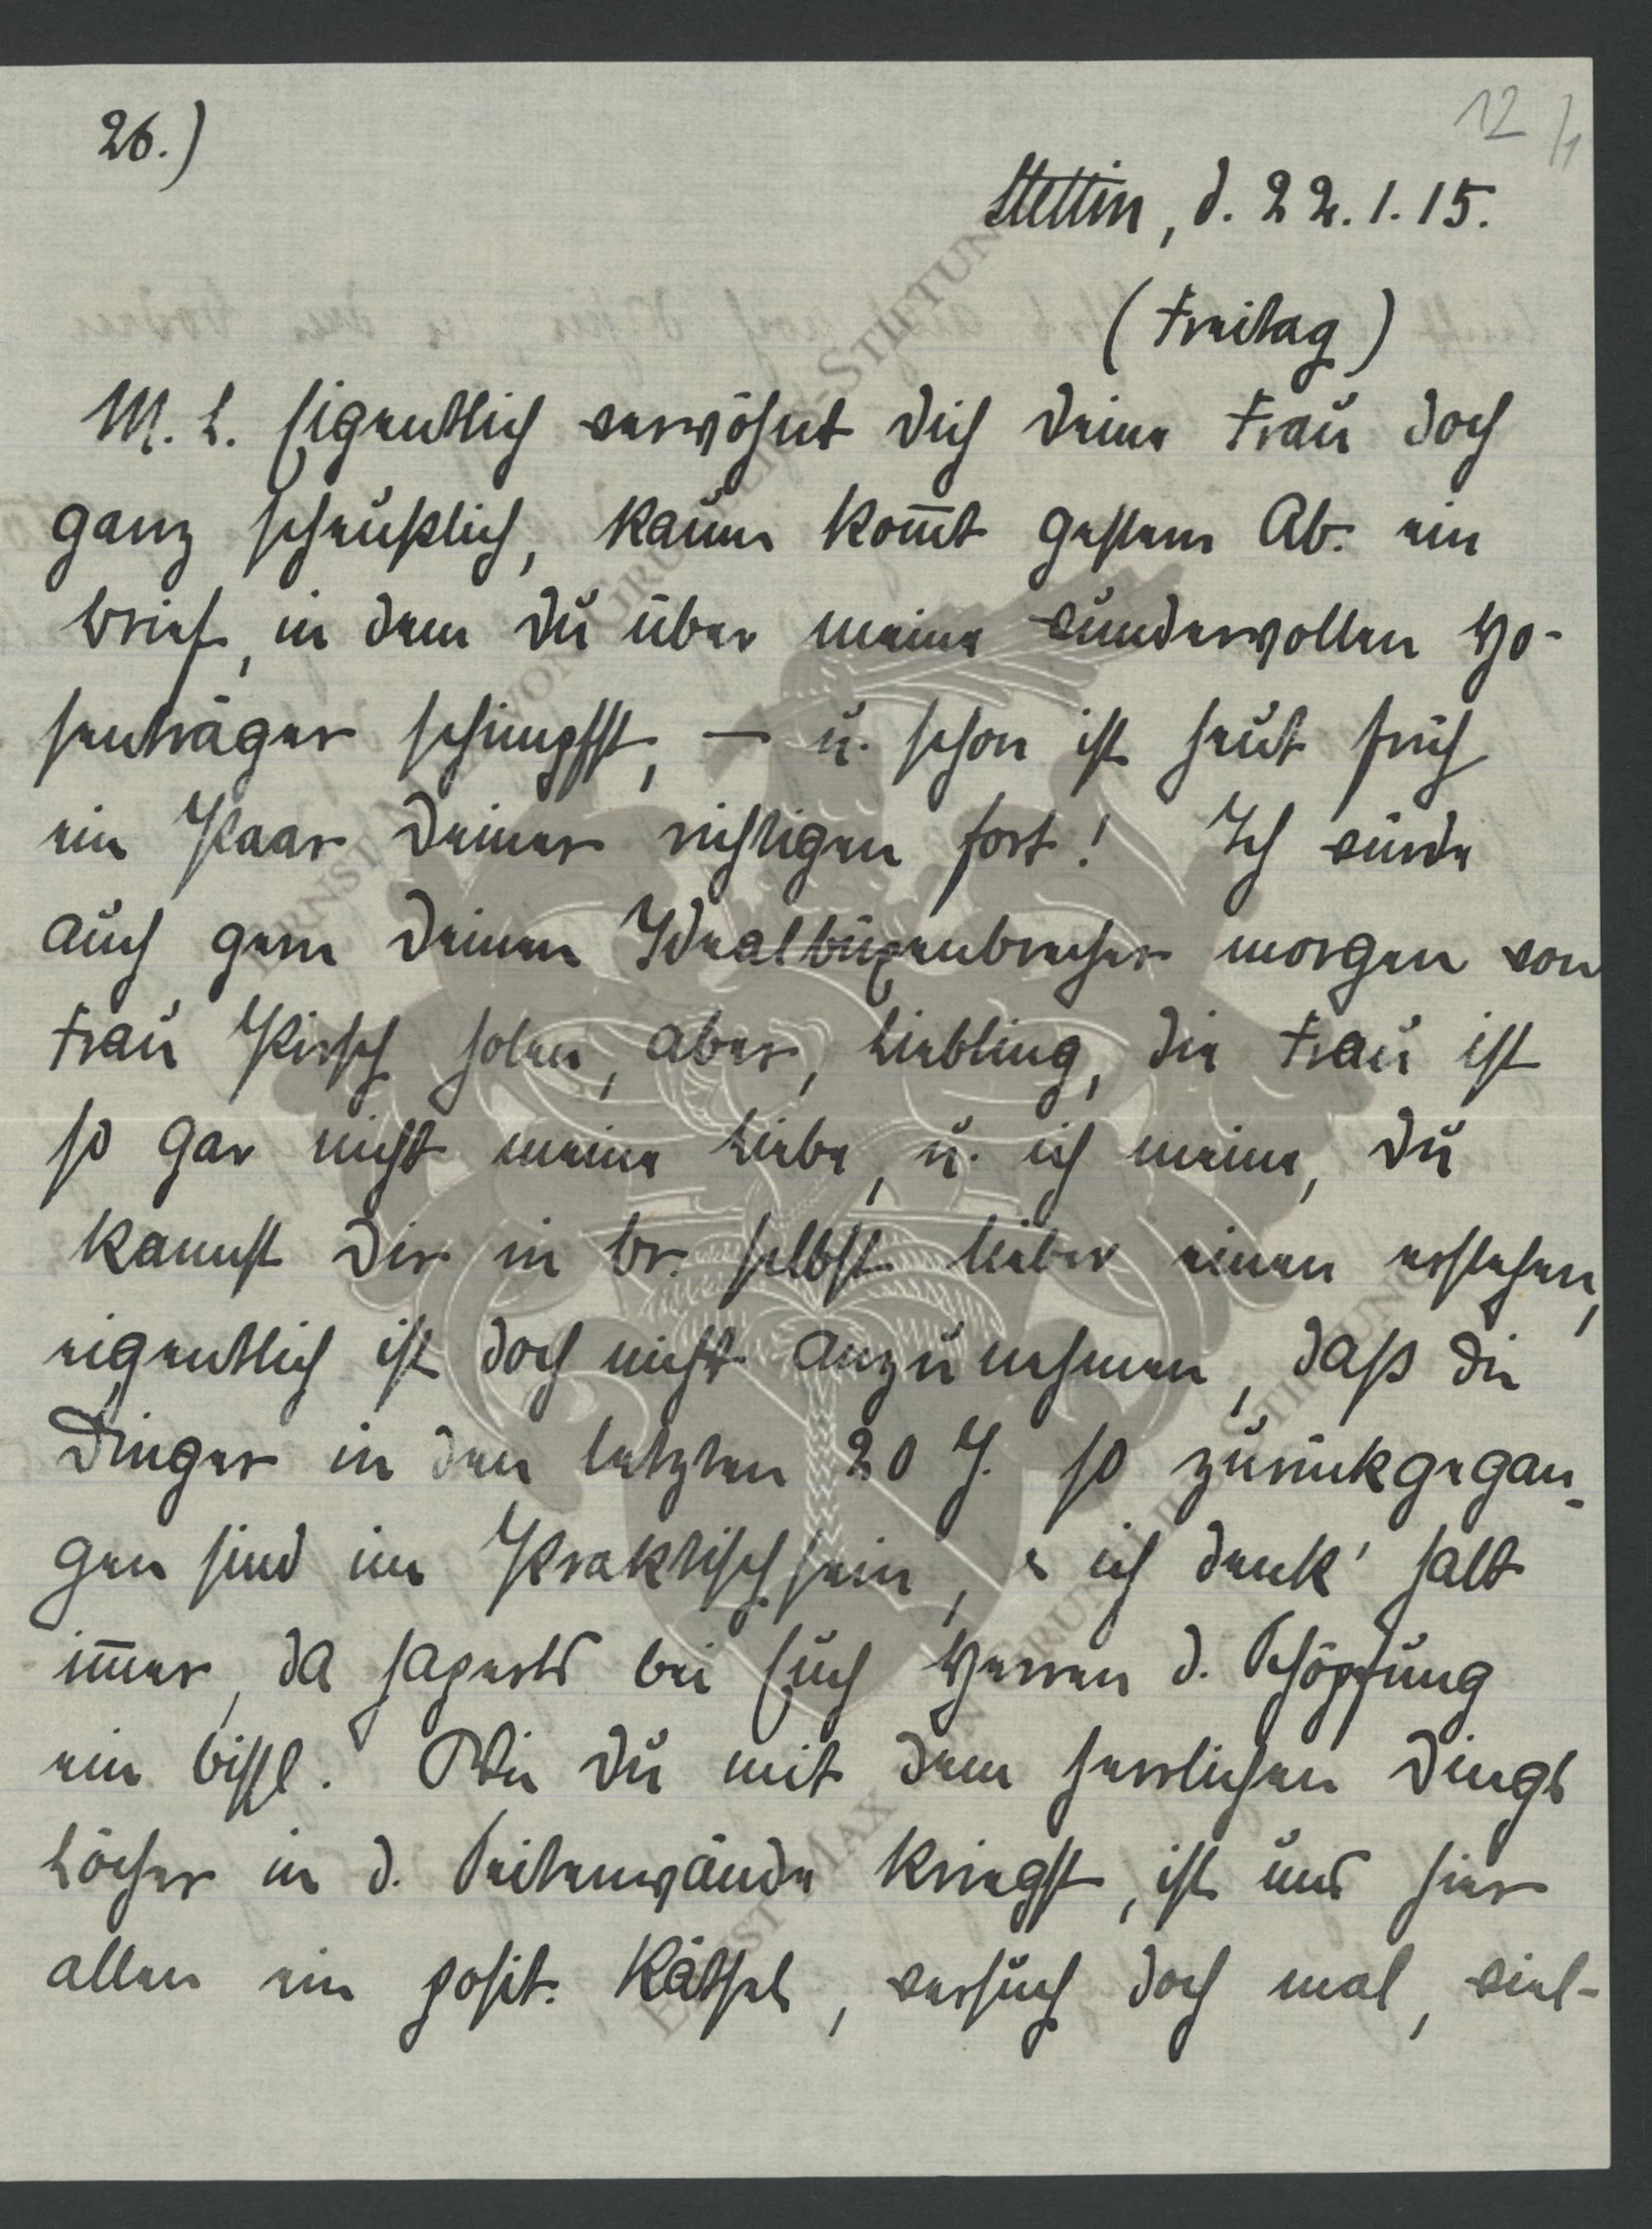 26.)
12
Stettin, d. 22.1.15.
(Freitag)
M. L. Eigentlich verwöhnt Dich Deine Frau doch
ganz scheußlich, kaum kom̄t gestern Ab. ein
Brief, in dem Du über meine wundervollen Ho-
senträger schimpfst, — u. schon ist heut früh
ein Paar Deiner richtigen fort! Ich würde
auch gern Deinen Idealbüxenbrecher morgen von
Frau Kirsch holen, aber, Liebling, die Frau ist
so gar nicht meine Liebe, u. ich meine, Du
kannst Dir in Br. selbst lieber einen erstehen,
eigentlich ist doch nicht anzunehmen, daß die
Dinger in den letzten 20 J. so zurückgegan-
gen sind im Praktischsein, ich denk' halt
im̄er, da haperts bei Euch Herren d. Schöpfung
ein bissl. Wie Du mit dem herrlichen Dings
Löcher in d. Seitenwände kriegst, ist uns hier
allen ein posit. Rätsel, versuch doch mal, viel-
ERNST MAX VON GRUNELIUS-STIFTUNG
ERNST MAX VON GRUNELIUS-STIFTUNG